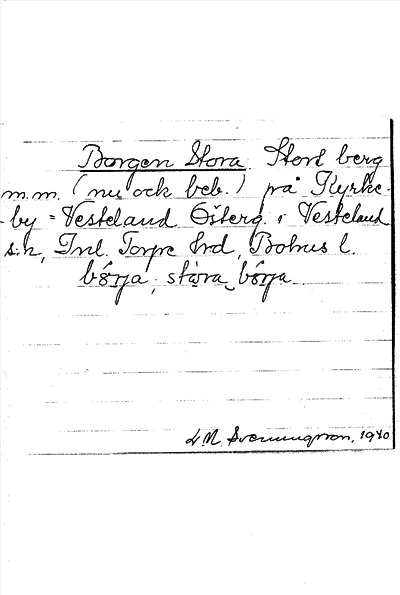 Borgen Stora. Stort berg
m.m. (nu ock beb.) på Kyrke-
by = Vesteland Österg. i Vesteland
s:n, Inl. Torpe hrd, Bohus l.
börja, stora börja.
L. N. Svenungsson, 1940